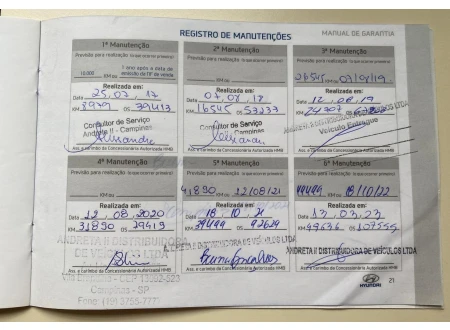 REGISTRO DE MANUTENÇÕES
MANUAL DE GARANTIA
1ª Manutenção
Previsão para realização (o que ocorrer primeiro)
10.000 KM ou 1 ano após a data de emissão da NF de venda
Realizada em:
Data 25.07.17
KM 8979 OS 39413
Consultor de Serviço
Andreta II - Campinas
Ass. e carimbo da Concessionária Autorizada HMB
2ª Manutenção
Previsão para realização (o que ocorrer primeiro)
KM ou
Realizada em:
Data
KM 16545 OS 53233
Consultor de Serviço
Andreta II - Campinas
Ass. e carimbo da Concessionária Autorizada HMB
3ª Manutenção
Previsão para realização (o que ocorrer primeiro)
26545 KM ou
Realizada em:
Data 12.08.19
KM 24707 OS
ANDRETA II DISTRIBUIDORA DE VEÍCULOS LTDA
Veículo Entregue
Ass. e carimbo da Concessionária Autorizada HMB
4ª Manutenção
Previsão para realização (o que ocorrer primeiro)
KM ou
Realizada em:
Data 12.08.2020
KM 31890 OS 79419
ANDRETA II DISTRIBUIDORA
DE VEÍCULOS LTDA
Ass. e carimbo da Concessionária Autorizada HMB
Campinas - SP
5ª Manutenção
Previsão para realização (o que ocorrer primeiro)
41.890 KM ou 12/08/21
Realizada em:
Data 18 10 21
KM 39499 OS 92629
ANDRETA II DISTRIBUIDORA DE VEÍCULOS LTDA
Ass. e carimbo da Concessionária Autorizada HMB
6ª Manutenção
Previsão para realização (o que ocorrer primeiro)
49499 KM ou 18/10/22
Realizada em:
Data 13.03.23
KM 49636 OS 107555
ANDRETA II DISTRIBUIDORA DE VEÍCULOS LTDA
Ass. e carimbo da Concessionária Autorizada HMB
HYUNDAI
21